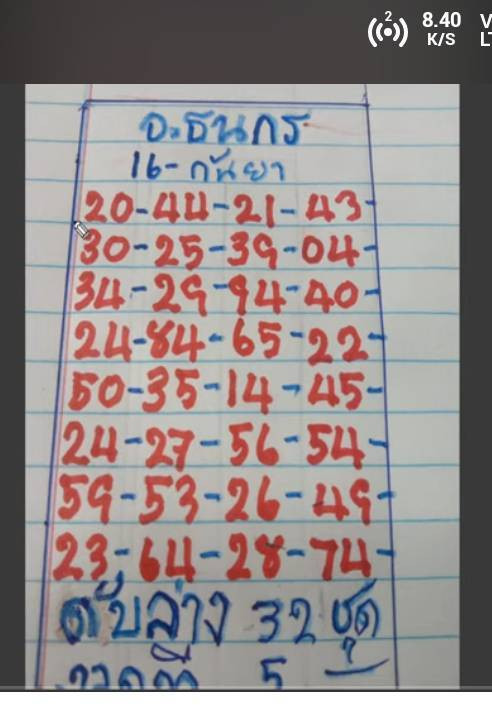 2 8.40 V
K/S LT
อ.ธนกร
16-กันยา
20-44-21-43-
30-25-39-04-
34-29-94-40-
24-84-65-22-
50-35-14-45-
24-27-56-54-
59-53-26-49-
23-64-28-74-
ดับล่าง 32 ชุด
5